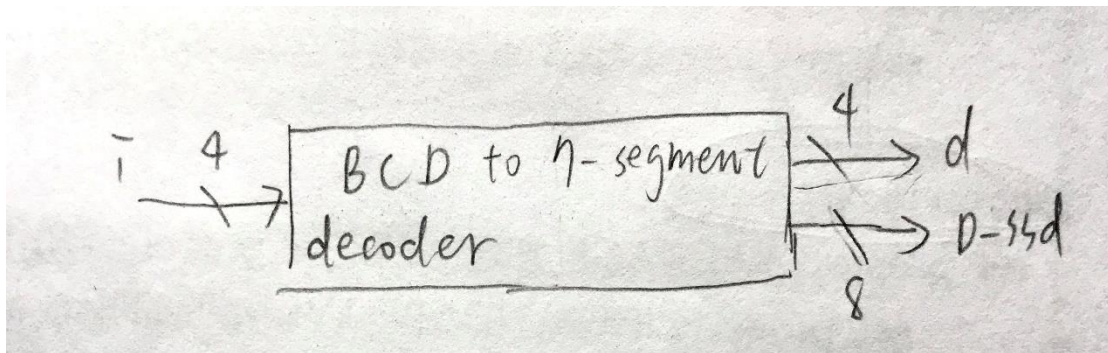 i
4
BCD to 7-segment
decoder
4
d
D-ssd
8